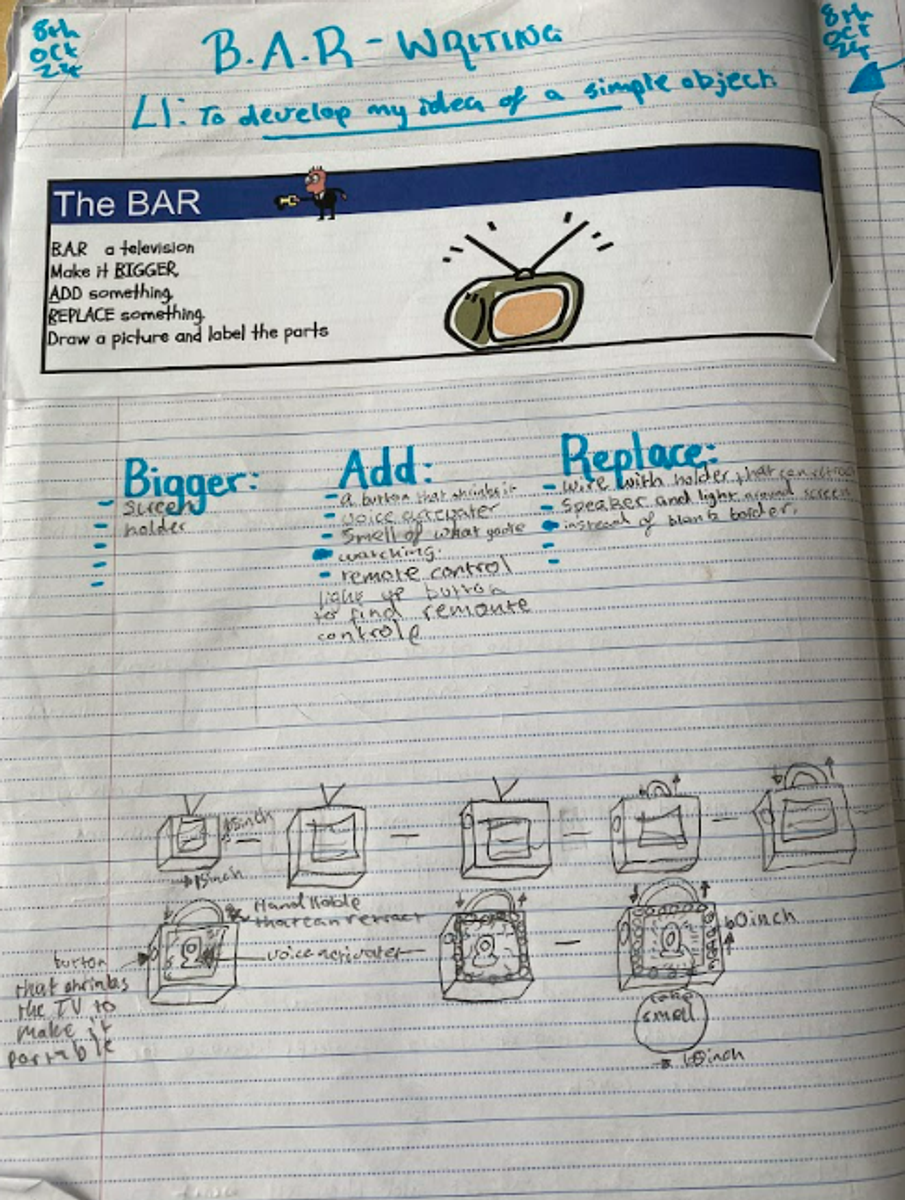 8th
oct
24
B.A.R - WRITING
LI: To develop my idea of a simple object.
8th
oct
24
The BAR
BAR a television
Make it BIGGER
ADD something
REPLACE something
Draw a picture and label the parts
Bigger:
- screen
- holder
-
-
-
Add:
- a button that shrinks it
- voice activater
- Smell of what you're
watching.
- remote control
light up button
to find remoute
controle
Replace:
- wire with holder that can retract
- Speaker and light around screen
instead of blank border.
-
-
15inch
→15inch
Hand Hoble
that can retract
voice activater
button
that shrinks
the TV to
make it
portable
60inch
smell
→ 60inch